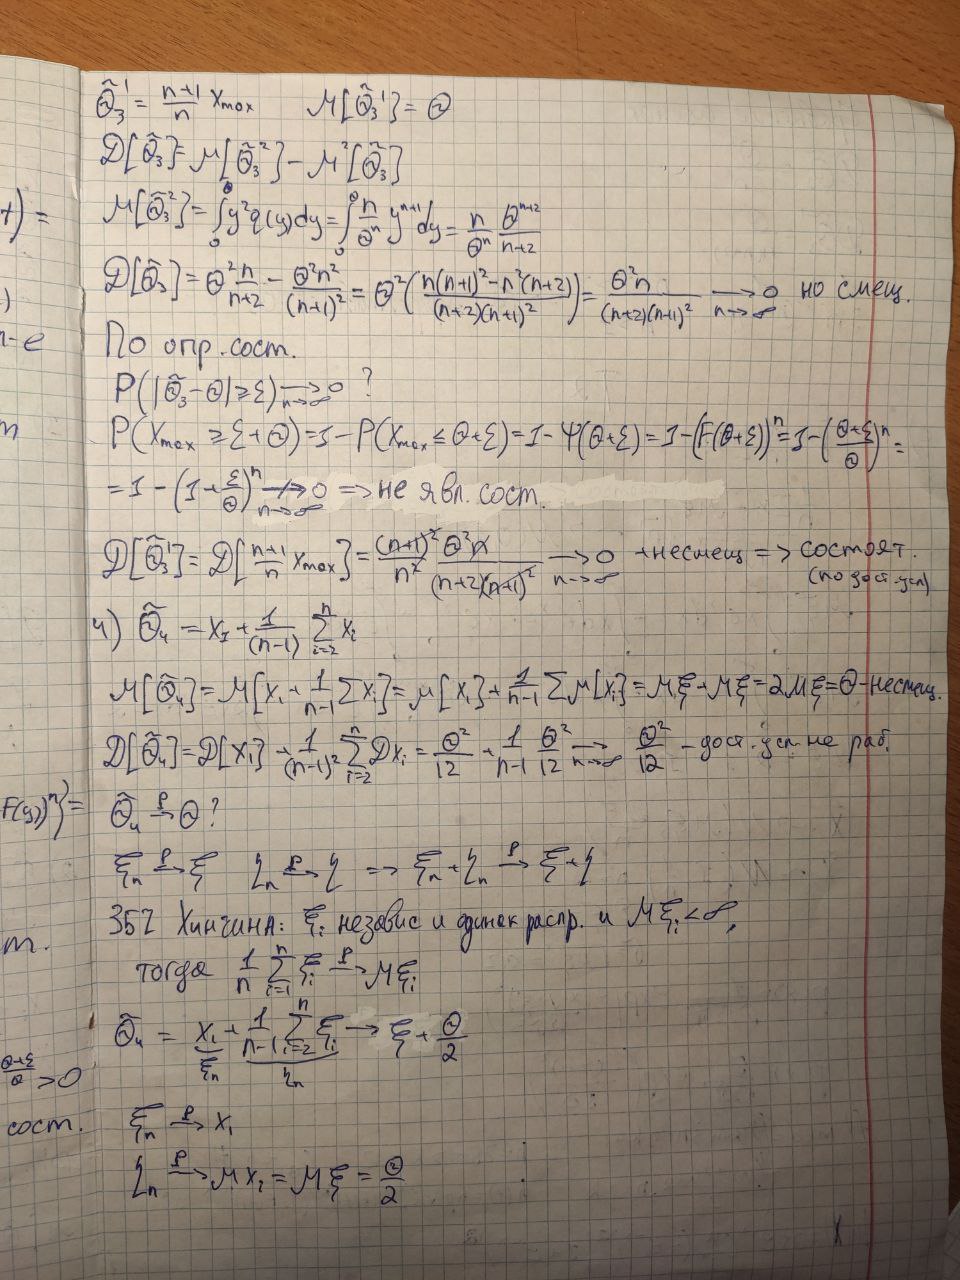 Θ̃₃' = (n+1)/n xₘₐₓ M[Θ̃₃'] = Θ
D[Θ̃₃] = M[Θ̃₃²] − M²[Θ̃₃]
M[Θ̃₃²] = ∫₀^Θ y² q(y)dy = ∫₀^Θ n/Θⁿ yⁿ⁺¹ dy = n/Θⁿ Θⁿ⁺²/(n+2)
D[Θ̃₃] = Θ² n/(n+2) − Θ²n²/(n+1)² = Θ²((n(n+1)² − n²(n+2))/((n+2)(n+1)²)) = Θ²n/((n+2)(n+1)²) ⟶ 0 n→∞ но смещ.
По опр. сост.
P(|Θ̃₃ − Θ| ≥ ε) ⟶ 0 n→∞ ?
P(Xₘₐₓ ≥ ε + Θ) = 1 − P(Xₘₐₓ ≤ Θ + ε) = 1 − Ψ(Θ + ε) = 1 − (F(Θ + ε))ⁿ = 1 − ((Θ + ε)/Θ)ⁿ =
= 1 − (1 + ε/Θ)ⁿ ↛ 0 n→∞ => не явл. сост.
D[Θ̃₃'] = D[(n+1)/n xₘₐₓ] = (n+1)²/n² Θ²n/((n+2)(n+1)²) ⟶ 0 n→∞ + несмещ => состоят.
(по дост. усл)
4) Θ̃₄ = x₁ + 1/(n−1) ∑ᵢ₌₂ⁿ xᵢ
M[Θ̃₄] = M[x₁ + 1/(n−1) ∑xᵢ] = M[x₁] + 1/(n−1) ∑M[xᵢ] = Mξ + Mξ = 2Mξ = Θ - несмещ.
D[Θ̃₄] = D[x₁] + 1/(n−1)² ∑ᵢ₌₂ⁿ Dxᵢ = Θ²/12 + 1/(n−1) Θ²/12 ⟶ n→∞ Θ²/12 - дост. усл. не раб.
F(y))ⁿ}' =
Θ̃₄ ⟶ᴾ Θ ?
ξₙ ⟶ᴾ ξ ηₙ ⟶ᴾ η => ξₙ + ηₙ ⟶ᴾ ξ + η
ЗБЧ Хинчина: ξᵢ независ и одинак распр. и Mξᵢ < ∞,
т.
тогда 1/n ∑ᵢ₌₁ⁿ ξᵢ ⟶ᴾ Mξᵢ
Θ̃₄ = x₁ + 1/(n−1) ∑ᵢ₌₂ⁿ ξᵢ ⟶ ξ + Θ/2
ξₙ ηₙ
(Θ+ε)/Θ > 0
сост.
ξₙ ⟶ᴾ x₁
ηₙ ⟶ᴾ Mxᵢ = Mξ = Θ/2